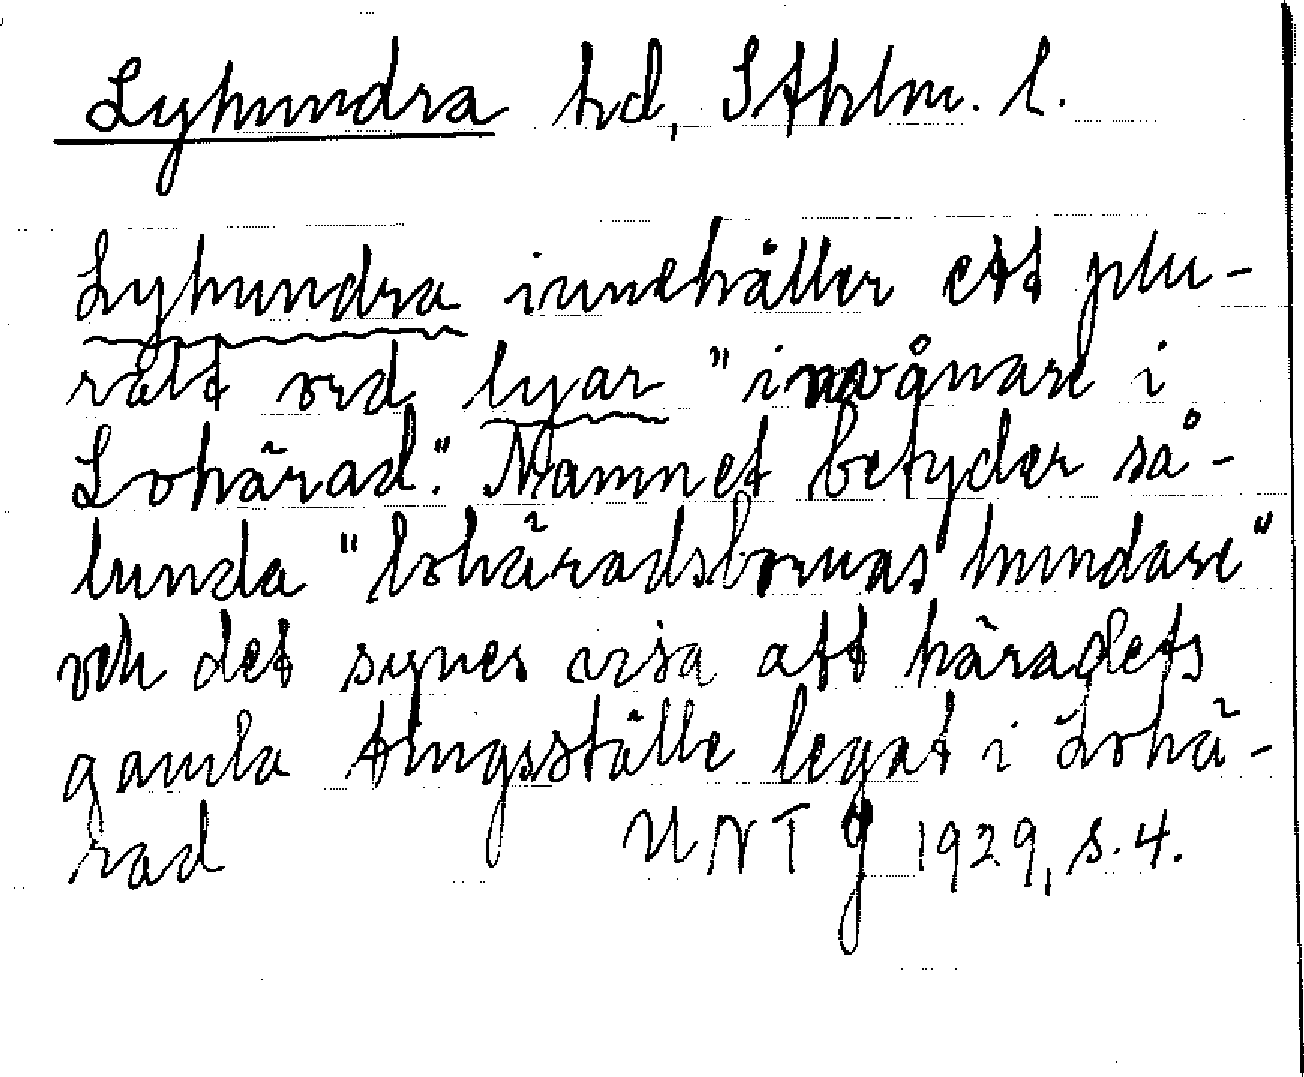 Lyhundra hd, Sthlm. l.
Lyhundra innehåller ett plu-
ralt ord lyar "invånare i
Lohärad". Namnet betyder så-
lunda "lohäradsbornas hundare"
och det synes visa att häradets
gamla tingsställe legat i Lohä-
rad UNT J 1929, s. 4.